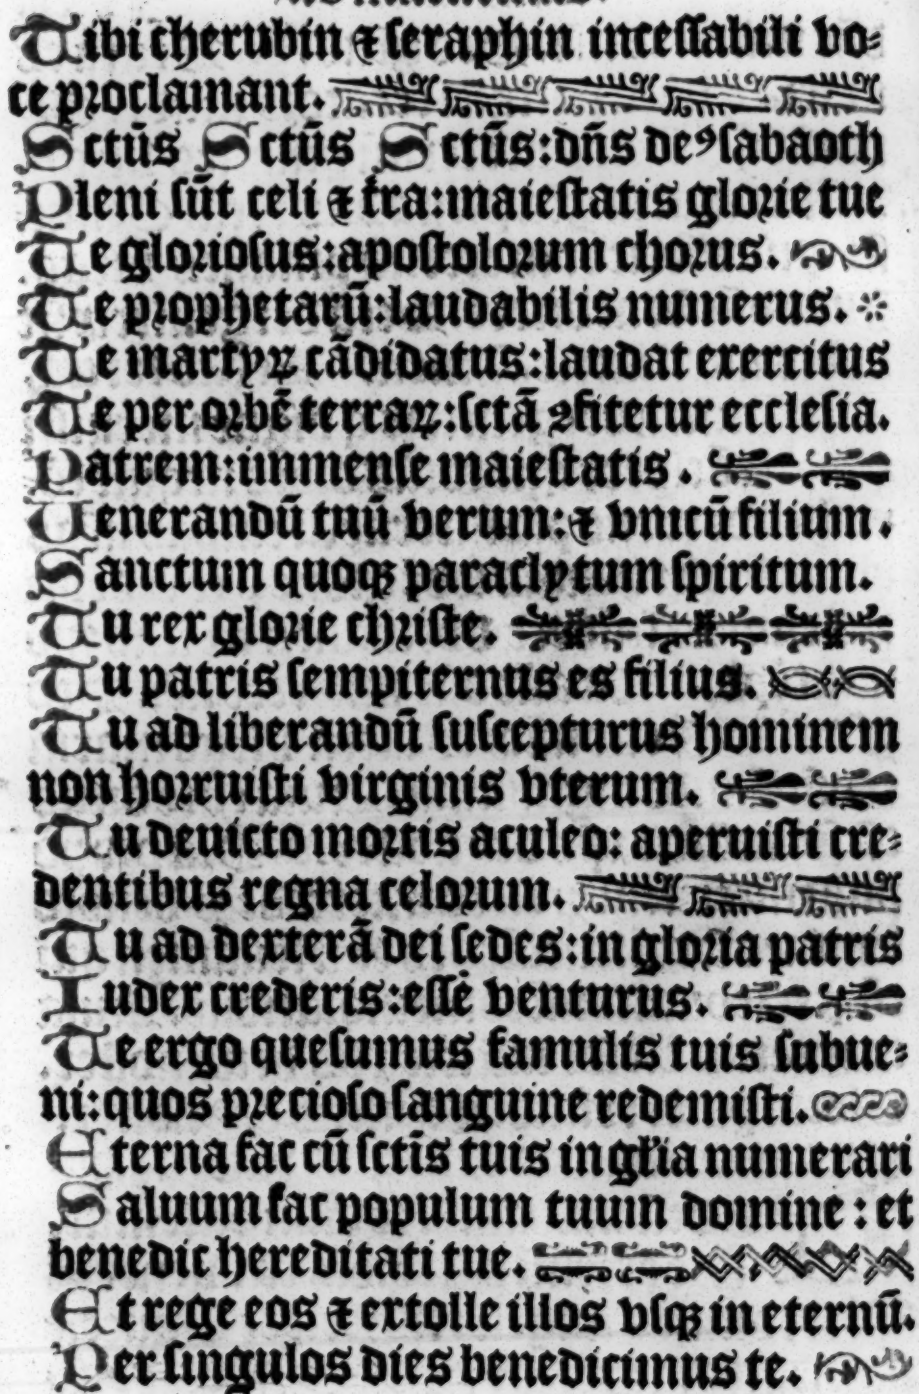 Tibi cherubin ⁊ seraphin incessabili vo⸗
ce proclamant.
Sctūs Sctūs Sctūs: dn̄s deꝰ sabaoth
Pleni sūt celi ⁊ tr̄a: maiestatis glorie tue
Te gloriosus: apostolorum chorus.
Te prophetarū: laudabilis numerus.
Te martyꝝ cādidatus: laudat exercitus
Te per orbē terraꝝ: sctā ꝯfitetur ecclesia.
Patrem: immense maiestatis.
Uenerandū tuū verum: ⁊ vnicū filium.
Sanctum quoqꝫ paraclytum spiritum.
Tu rex glorie christe.
Tu patris sempiternus es filius.
Tu ad liberandū suscepturus hominem
non horruisti virginis vterum.
Tu deuicto mortis aculeo: aperuisti cre⸗
dentibus regna celorum.
Tu ad dexterā dei sedes: in gloria patris
Iudex crederis: esse venturus.
Te ergo quesumus famulis tuis subue⸗
ni: quos precioso sanguine redemisti.
Eterna fac cū sctīs tuis in gl̄ia numerari
Saluum fac populum tuum domine: et
benedic hereditati tue.
Et rege eos ⁊ extolle illos vsqꝫ in eternū.
Per singulos dies benedicimus te.